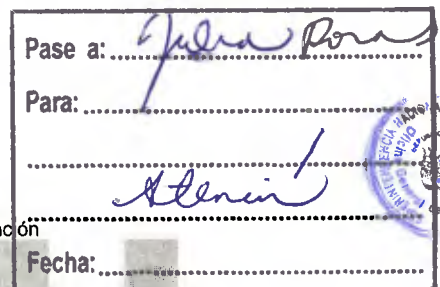 Pase a: Julia Rosas
Para:
Atención
nción
Fecha: